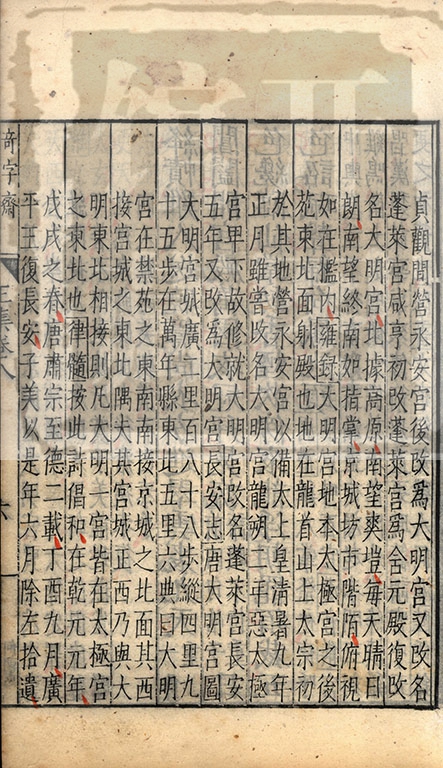 貞觀間營永安宮後改爲大明宮又改名
蓬萊宮咸亨初改蓬萊宮爲含元殿復改
名大明宮北據高原南望爽塏每天晴日
朗南望終南如指掌京城坊市階陌俯視
如在檻內雍録大明宮地本太極宮之後
苑東北面射殿也地在龍首山上太宗初
於其地營永安宮以備太上皇清暑九年
正月雖嘗改名大明宮龍朔二年惡太極
宮卑下故修就大明宮改名蓬萊宮長安
五年又改爲大明宮長安志唐大明宮圖
大明宮城廣二里百八十八步縱四里九
十五步在萬年縣東北五里六典曰大明
宮在禁苑之東南南接京城之北面其西
接宮城之東北隅大其宮城正西乃與大
明東北相接則凡大明一宮皆在太極宮
之東北也律髓按此詩倡和在乾元元年
戊戌之春唐肅宗至德二載丁酉九月廣
平王復長安子美以是年六月除左拾遺
奇字齋 王集卷八 六